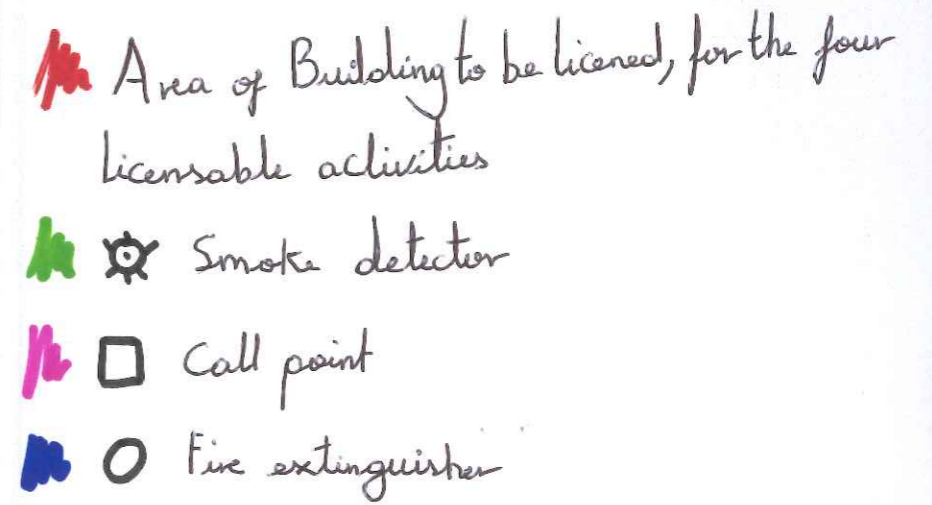 Area of Building to be licened, for the four
licensable activities
Smoke detector
Call point
Fire extinguisher